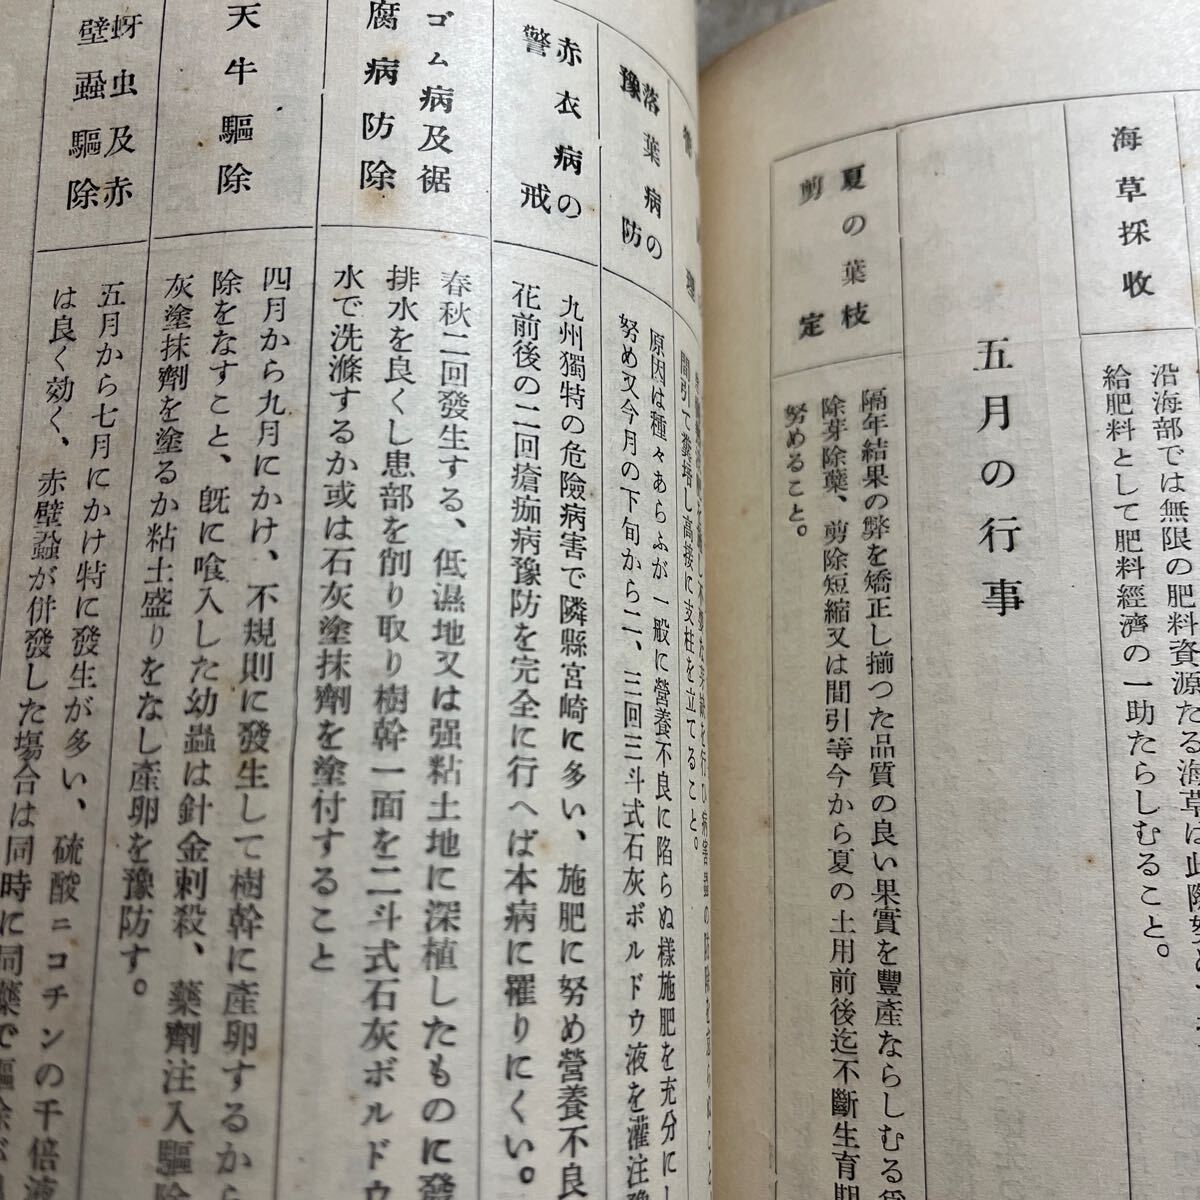 海草採收
沿海部では無限の肥料資源たる海草は此際
給肥料として肥料經濟の一助たらしむること。
五月の行事
夏の葉枝
剪定
隔年結果の弊を矯正し揃つた品質の良い果實を豐產ならしむる爲
除芽除葉、剪除短縮又は間引等今から夏の土用前後迄不斷生育期
努めること。
理
間引て糞培し高接に支柱を立てること。
落葉病の
豫防
原因は種々あらふが一般に營養不良に陷らぬ樣施肥を充分にし
努め又今月の下旬から二、三回三斗式石灰ボルドウ液を灌注豫
赤衣病の
警戒
九州獨特の危險病害で隣縣宮崎に多い、施肥に努め營養不良
花前後の二回瘡痂病豫防を完全に行へば本病に罹りにくい。
ゴム病及裾
腐病防除
春秋二回發生する、低濕地又は强粘土地に深植したものに發
排水を良くし患部を削り取り樹幹一面を二斗式石灰ボルドウ
水で洗滌するか或は石灰塗抹劑を塗付すること
天牛驅除
四月から九月にかけ、不規則に發生して樹幹に產卵するから
除をなすこと、旣に喰入した幼蟲は針金刺殺、藥劑注入驅除
灰塗抹劑を塗るか粘土盛りをなし產卵を豫防す。
蚜虫及赤
壁蝨驅除
五月から七月にかけ特に發生が多い、硫酸ニコチンの千倍液
は良く効く、赤壁蝨が併發した場合は同時に同藥で驅除が